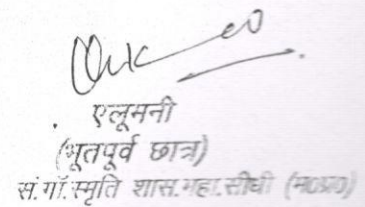 एलूमनी
(भूतपूर्व छात्र)
सं.गाँ.स्मृति शास.महा.सीधी (म०प्र०)